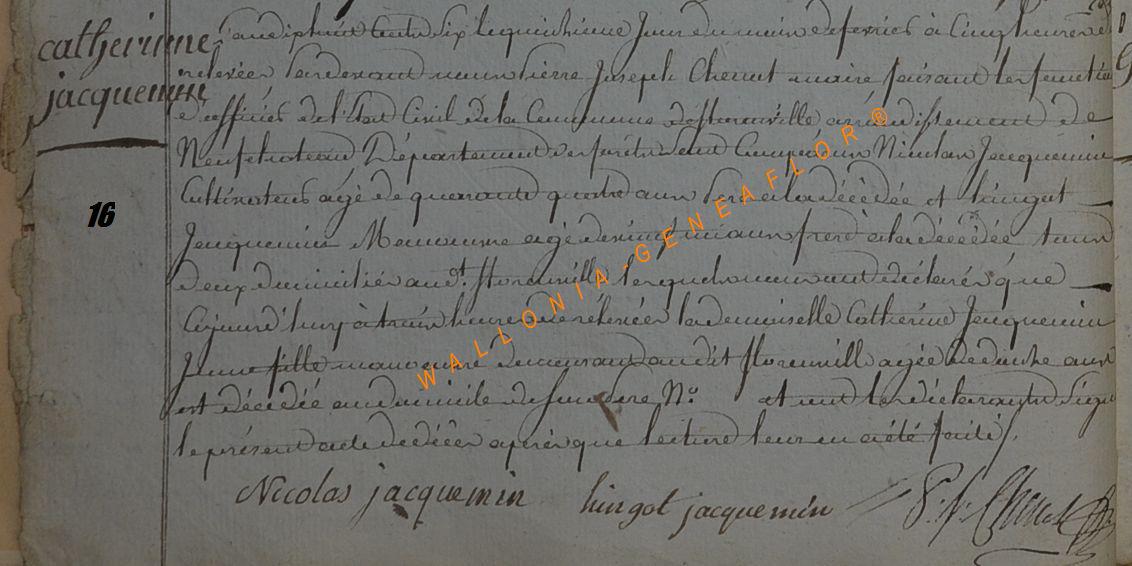 catherinne
jacquemin
16
L'an dixhuit cents six le quinzieme Jour du mois de fevrier à Cinq heures de
relevées Pardevant nous Pierre Joseph Cherrut maire faisant les fonctions
d'officier de l'Etat Civil de la Commune de florenville arrondissement de
Neufchateau Département des forêts sont Comparus Nicolas Jacquemin
Cultivateur agé de quarante quatre ans Pere à la décèdée et hingot
Jacquemin Manouvre agé de vingt ans frere à la décédée tous
deux domiciliés audt. florenville lesquels nous ont déclarés que
Cejourd'huy à trois heures de relevées lademoiselle Catherine Jacquemin
Jeune fille manouvre demeurant audit florenville agée de douze ans
est décédée au domicile de son pere No. et ont les déclarants signé
le présent acte de décès après que lecture leur en a été faite.
Nicolas jacquemin
hingot jacquemin
P. J. Cherrut
WALLONIA-GENEAFLOR®